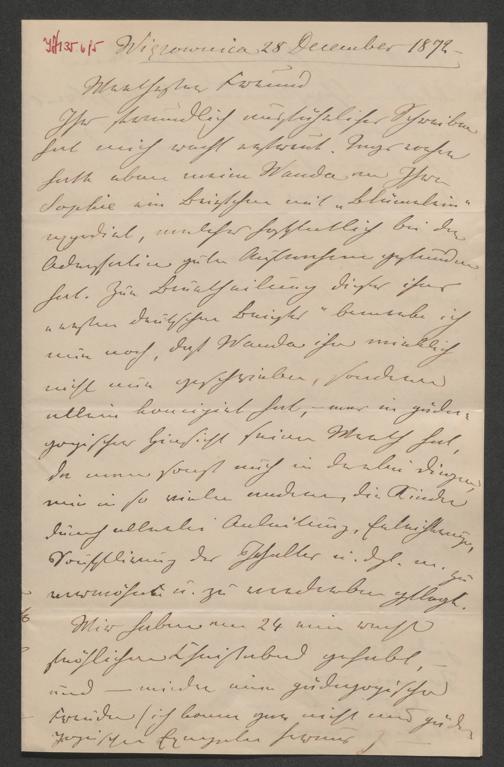 Wiązownica 28 December 1872
Werthester Freund
Ihr freundlich ausführliches Schreiben
hat mich recht erfreut. Tags vorher
hatte eben meine Wanda an Ihre
Sophie ein Briefchen mit „Blümlein“
expedirt, welches hoffentlich bei der
Adressatin gute Aufnahme gefunden
hat. Zur Beurtheilung dieses ihres
„ersten deutschen Briefes“ bemerke ich
nur noch, daß Wanda ihn wirklich
nicht nur geschrieben, sondern
allein koncipirt hat, – was in päda-
gogischer Hinsicht seinen Werth hat,
da man sonst auch in derlei Dingen,
wie in so vielen anderen, die Kinder
durch allerlei Anleitung,
der u. dgl. m. zu
verwöhnen u. zu verderben pflegt.
Wir haben am 24 einen recht
fröhlichen Christabend gehabt, –
und – wieder eine pädagogische
Freude (ich komme gar nicht aus päda-
gogischen Exempeln heraus